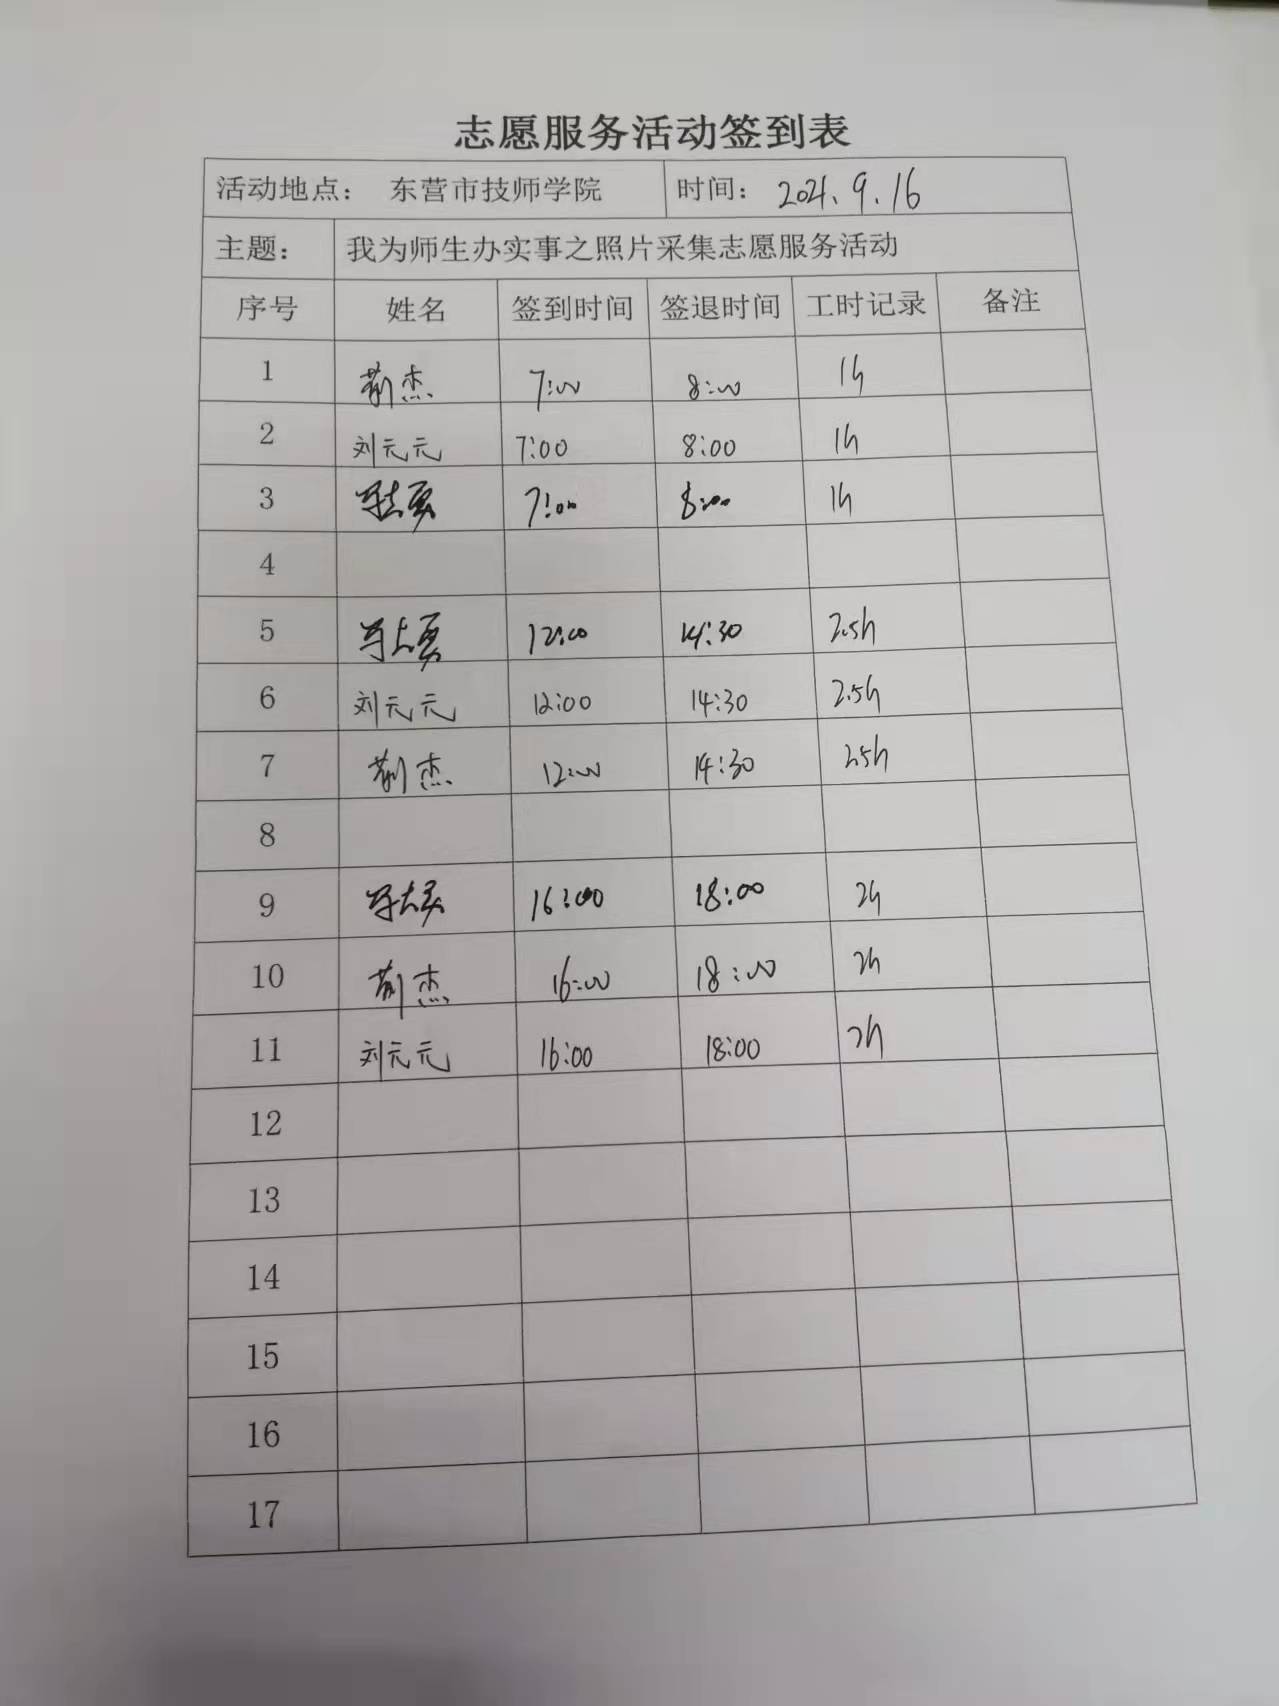 志愿服务活动签到表
活动地点： 东营市技师学院 时间： 2021.9.16
主题： 我为师生办实事之照片采集志愿服务活动
序号 姓名 签到时间 签退时间 工时记录 备注
1 荆杰 7:00 8:00 1h
2 刘元元 7:00 8:00 1h
3 7:00 8:00 1h
4
5 12:00 14:30 2.5h
6 刘元元 12:00 14:30 2.5h
7 荆杰 12:00 14:30 2.5h
8
9 16:00 18:00 2h
10 荆杰 16:00 18:00 2h
11 刘元元 16:00 18:00 2h
12
13
14
15
16
17